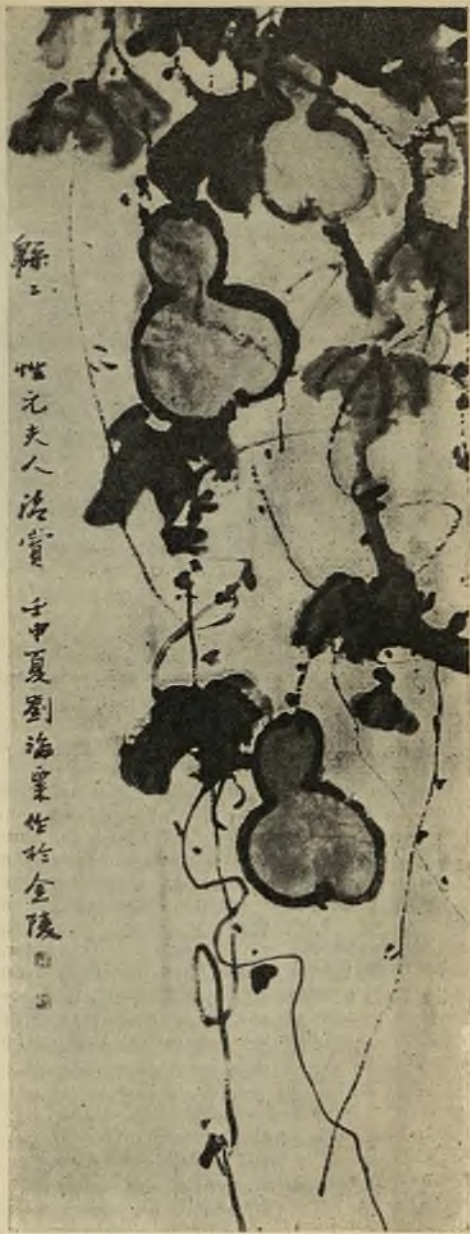 緜〻
性元夫人清賞 壬申夏劉海粟作於金陵